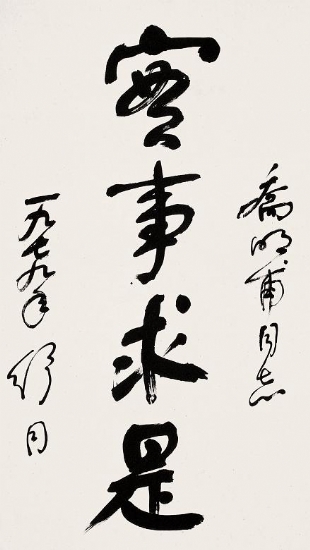 喬明甫同志
實事求是
一九七九年 舒同